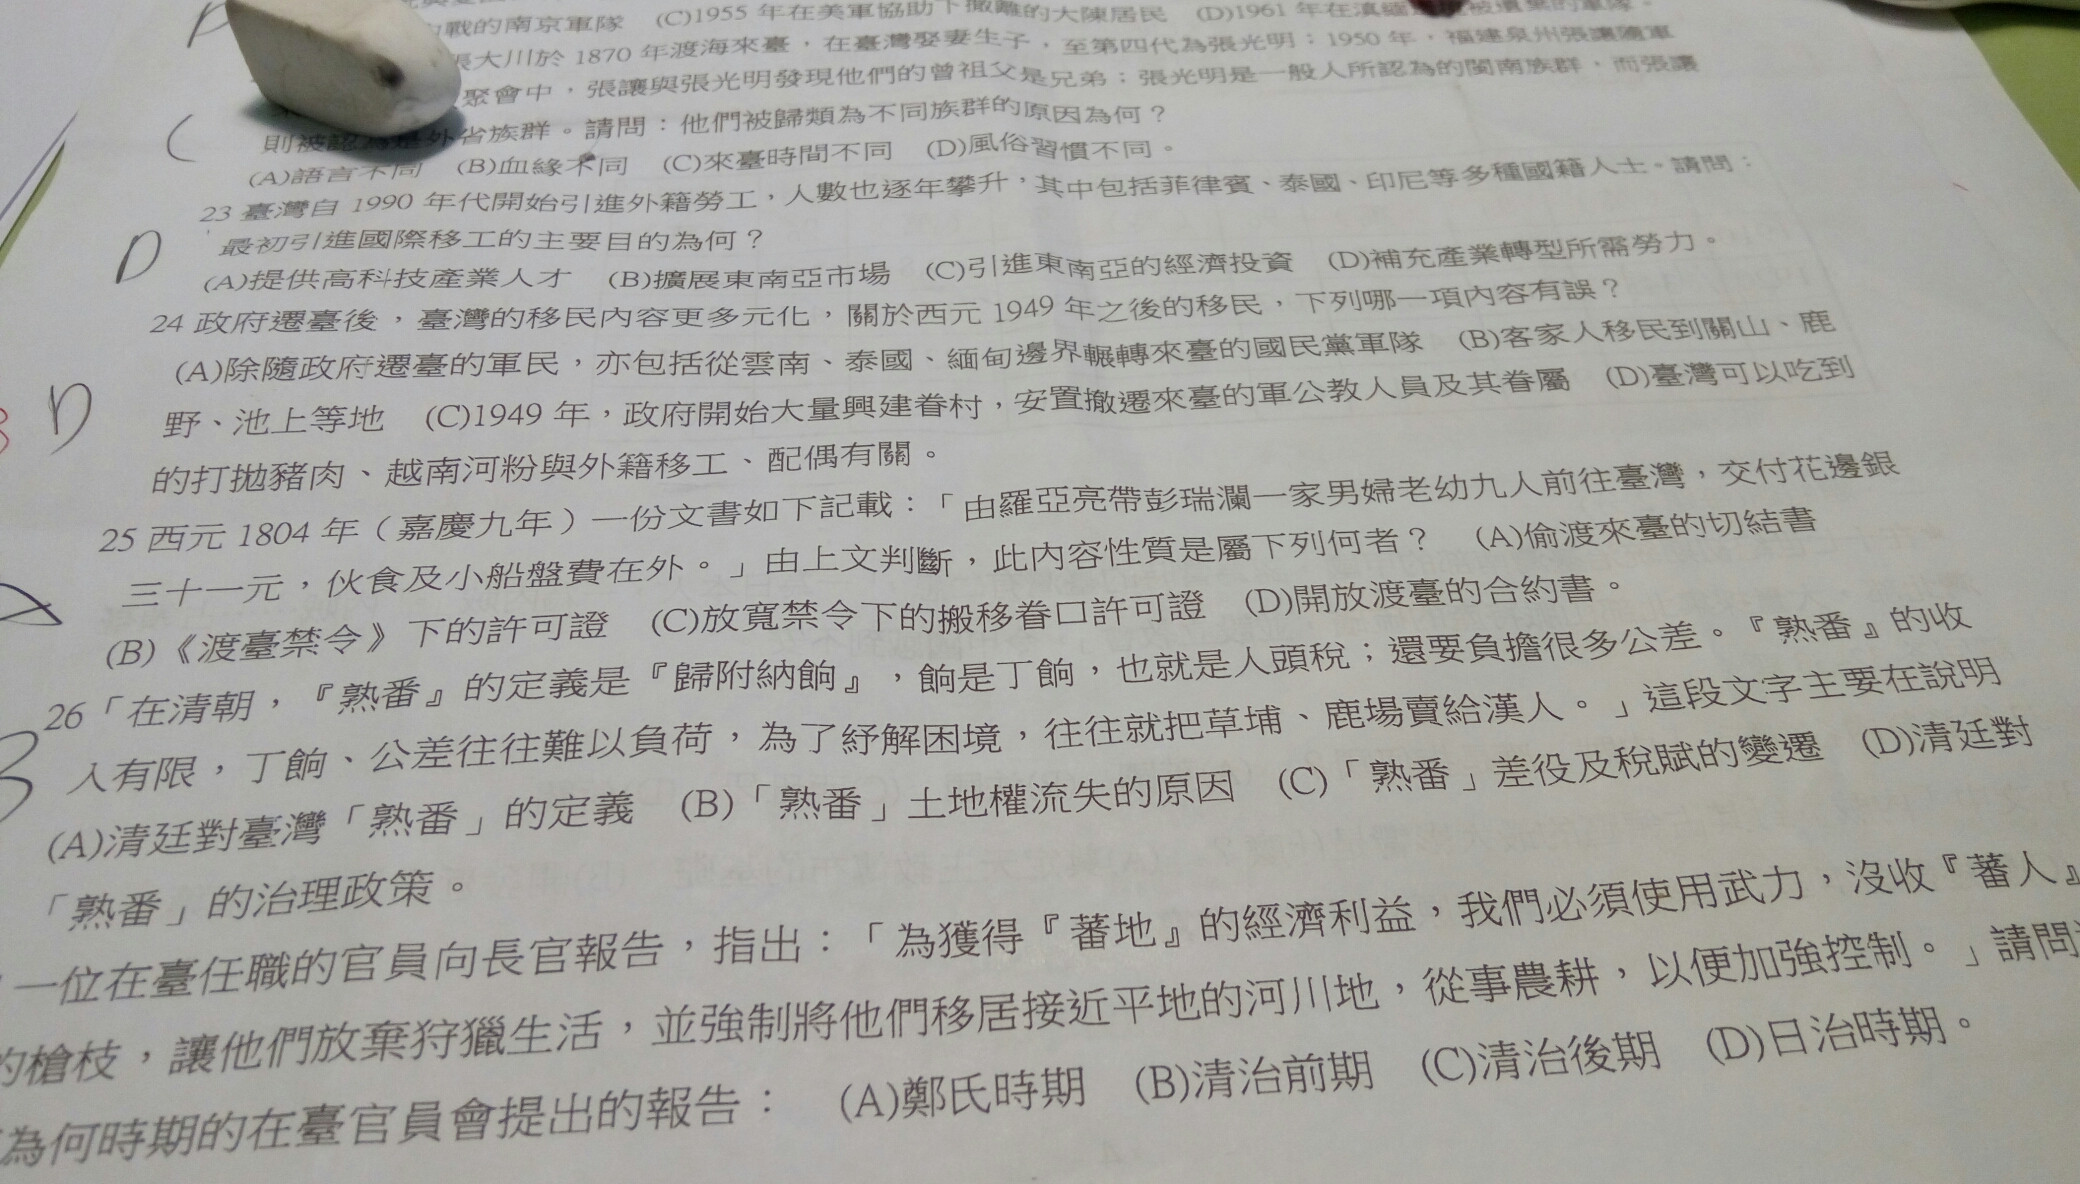 戰的南京軍隊 (C)1955 年在美軍協助下撤離的大陳居民 (D)1961 年在滇緬
張大川於 1870 年渡海來臺，在臺灣娶妻生子，至第四代為張光明；1950 年，福建泉州張讓隨軍
聚會中，張讓與張光明發現他們的曾祖父是兄弟；張光明是一般人所認為的閩南族群，而張讓
C 則被認為是外省族群。請問：他們被歸類為不同族群的原因為何？
(A)語言不同 (B)血緣不同 (C)來臺時間不同 (D)風俗習慣不同。
23 臺灣自 1990 年代開始引進外籍勞工，人數也逐年攀升，其中包括菲律賓、泰國、印尼等多種國籍人士。請問：
D 最初引進國際移工的主要目的為何？
(A)提供高科技產業人才 (B)擴展東南亞市場 (C)引進東南亞的經濟投資 (D)補充產業轉型所需勞力。
24 政府遷臺後，臺灣的移民內容更多元化，關於西元 1949 年之後的移民，下列哪一項內容有誤？
(A)除隨政府遷臺的軍民，亦包括從雲南、泰國、緬甸邊界輾轉來臺的國民黨軍隊 (B)客家人移民到關山、鹿
D 野、池上等地 (C)1949 年，政府開始大量興建眷村，安置撤遷來臺的軍公教人員及其眷屬 (D)臺灣可以吃到
的打拋豬肉、越南河粉與外籍移工、配偶有關。
25 西元 1804 年（嘉慶九年）一份文書如下記載：「由羅亞亮帶彭瑞瀾一家男婦老幼九人前往臺灣，交付花邊銀
A 三十一元，伙食及小船盤費在外。」由上文判斷，此內容性質是屬下列何者？ (A)偷渡來臺的切結書
(B)《渡臺禁令》下的許可證 (C)放寬禁令下的搬移眷口許可證 (D)開放渡臺的合約書。
26「在清朝，『熟番』的定義是『歸附納餉』，餉是丁餉，也就是人頭稅；還要負擔很多公差。『熟番』的收
B 入有限，丁餉、公差往往難以負荷，為了紓解困境，往往就把草埔、鹿場賣給漢人。」這段文字主要在說明
(A)清廷對臺灣「熟番」的定義 (B)「熟番」土地權流失的原因 (C)「熟番」差役及稅賦的變遷 (D)清廷對
「熟番」的治理政策。
一位在臺任職的官員向長官報告，指出：「為獲得『蕃地』的經濟利益，我們必須使用武力，沒收『蕃人』
的槍枝，讓他們放棄狩獵生活，並強制將他們移居接近平地的河川地，從事農耕，以便加強控制。」請問
為何時期的在臺官員會提出的報告： (A)鄭氏時期 (B)清治前期 (C)清治後期 (D)日治時期。